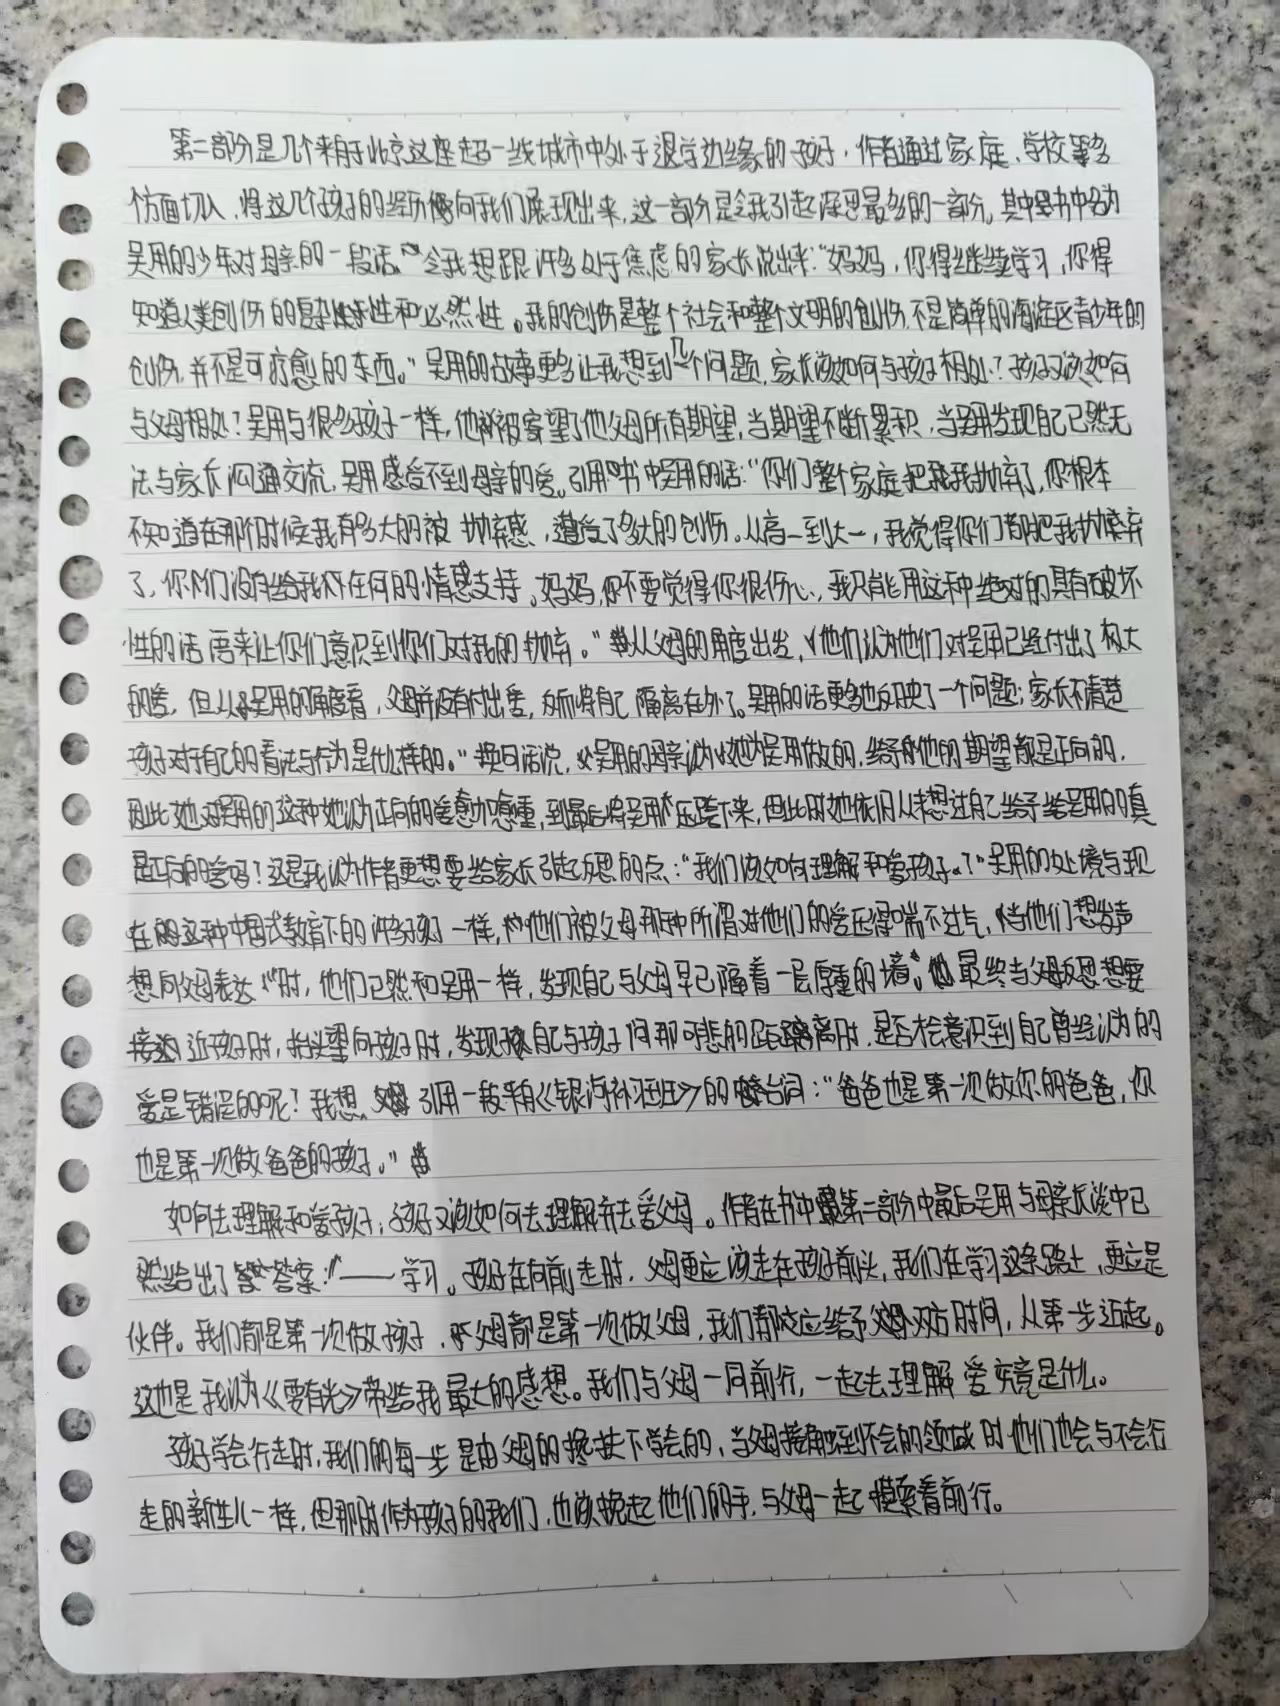 第二部分是几个来自于北京这座超一线城市中处于退学边缘的孩子，作者通过家庭、学校等多
个方面切入，将这几个孩子的经历向我们展现出来，这一部分是令我引起深思最多的一部分。其中是书中名为
吴用的少年对母亲的一段话。令我想跟许多处于焦虑的家长说出来：“妈妈，你得继续学习，你得
知道人类创伤的复杂性和必然性。我的创伤是整个社会和整个文明的创伤，不是简单的海淀区青少年的
创伤，并不是可疗愈的东西。”吴用的故事更多让我想到几个问题，家长该如何与孩子相处？孩子又该如何
与父母相处？吴用与很多孩子一样，他被寄望了他父母所有期望，当期望不断累积，当吴用发现自己已然无
法与家长沟通交流，吴用感受不到母亲的爱。引用书中吴用的话：“你们整个家庭把我抛弃了，你根本
不知道在那个时候我有多大的被抛弃感，遭受了多大的创伤。从高一到大一，我觉得你们都把我抛弃
了，你们没有给我任何的情感支持。妈妈，你不要觉得你很伤心，我只能用这种绝对的具有破坏
性的话语来让你们意识到你们对我的抛弃。”从父母的角度出发，他们认为他们对吴用已经付出了极大
的爱，但从吴用的角度看，父母并没有付出爱，反而将自己隔离在外了。吴用的话更多地反映了一个问题；家长不清楚
孩子对于自己的看法与作为是什么样的。”换句话说，吴用的母亲认为她为吴用做的，给予他的期望都是正向的，
因此她对吴用的这种她认为正向的爱愈加愈重，到最后将吴用压垮下来，但此时她依旧从未想过自己给予给吴用的真
是正向的爱吗？这是我认为作者更想要给家长引起反思的点：“我们该如何理解和爱孩子？”吴用的处境与现
在的这种中国式教育下的许多孩子一样，他们被父母那种所谓对他们的爱压得喘不过气，当他们想发声
想向父母表达时，他们已然和吴用一样，发现自己与父母早已隔着一层厚重的墙。最终当父母反思想要
接近孩子时，抬头望向孩子时，发现自己与孩子间那可悲的距离时，是否才会意识到自己曾经认为的
爱是错误的呢？我想引用一段来自《银河补习班》的台词：“爸爸也是第一次做你的爸爸，你
也是第一次做爸爸的孩子。”
如何去理解和爱孩子，孩子又该如何去理解并去爱父母。作者在书中第二部分中最后吴用与母亲长谈中已
然给出了答案：“——学习。孩子在向前走时，父母更应该走在孩子前头，我们在学习这条路上，更应是
伙伴。我们都是第一次做孩子，父母都是第一次做父母，我们都应给予双方时间，从第一步迈起。
这也是我认为《要有光》带给我最大的感想。我们与父母一同前行，一起去理解爱究竟是什么。
孩子学会行走时，我们的每一步是由父母的搀扶下学会的，当父母接触到不会的领域时他们也会与不会行
走的新生儿一样，但那时作为孩子的我们，也该挽起他们的手，与父母一起摸索着前行。